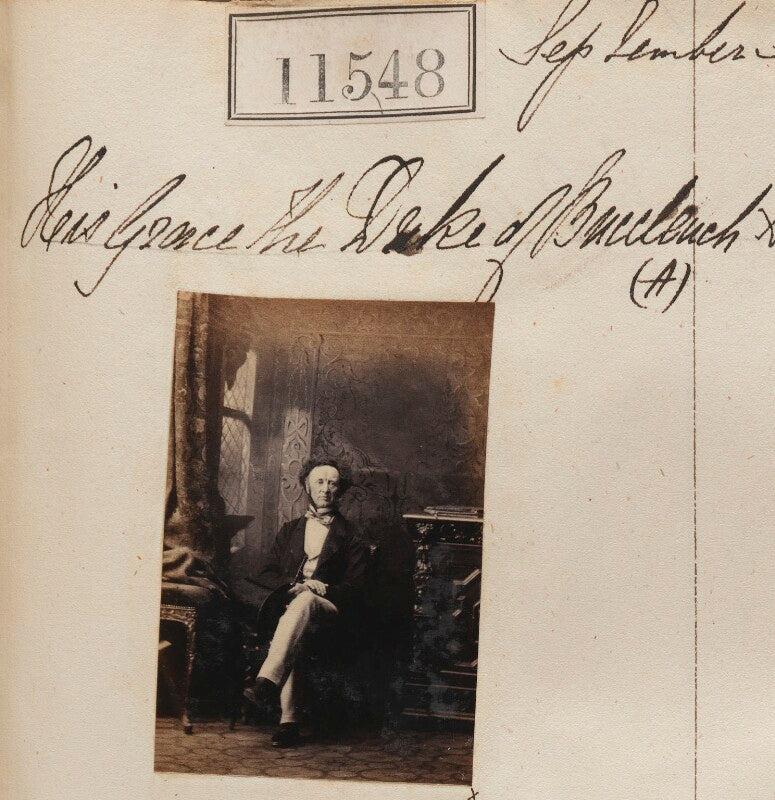 11548
September
His Grace the Duke of Buccleuch
(A)